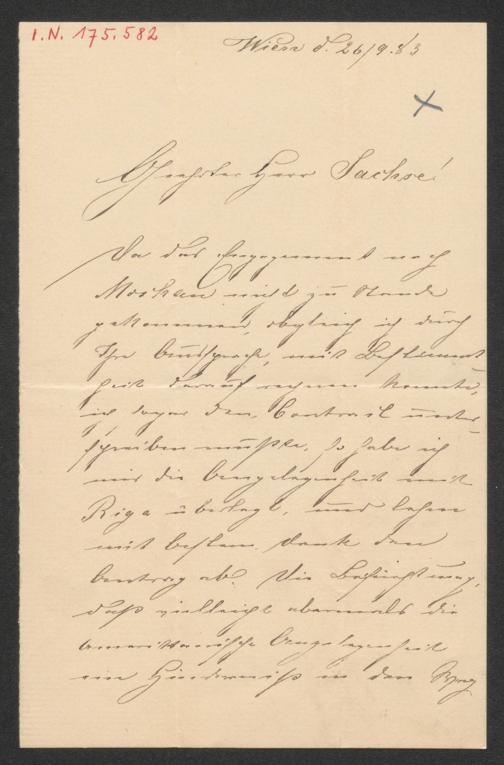 I.N. 175.582
Wien d. 26/9.83
Geehrter Herr Sachse!
Da das Engagement nach
Moskau nicht zu Stande
gekommen, obgleich ich durch
Ihre Aussprache, mit Bestimmt-
heit darauf rechnen konnte,
ich sogar den Contract unter-
schreiben mußte, so habe ich
mir die Angelegenheit mit
Riga überlegt, und lehne
mit bestem Dank den
Antrag ab. Die Befürchtung,
daß vielleicht abermals die
amerikanische Angelegenheit
ein Hinderniß in den Weg